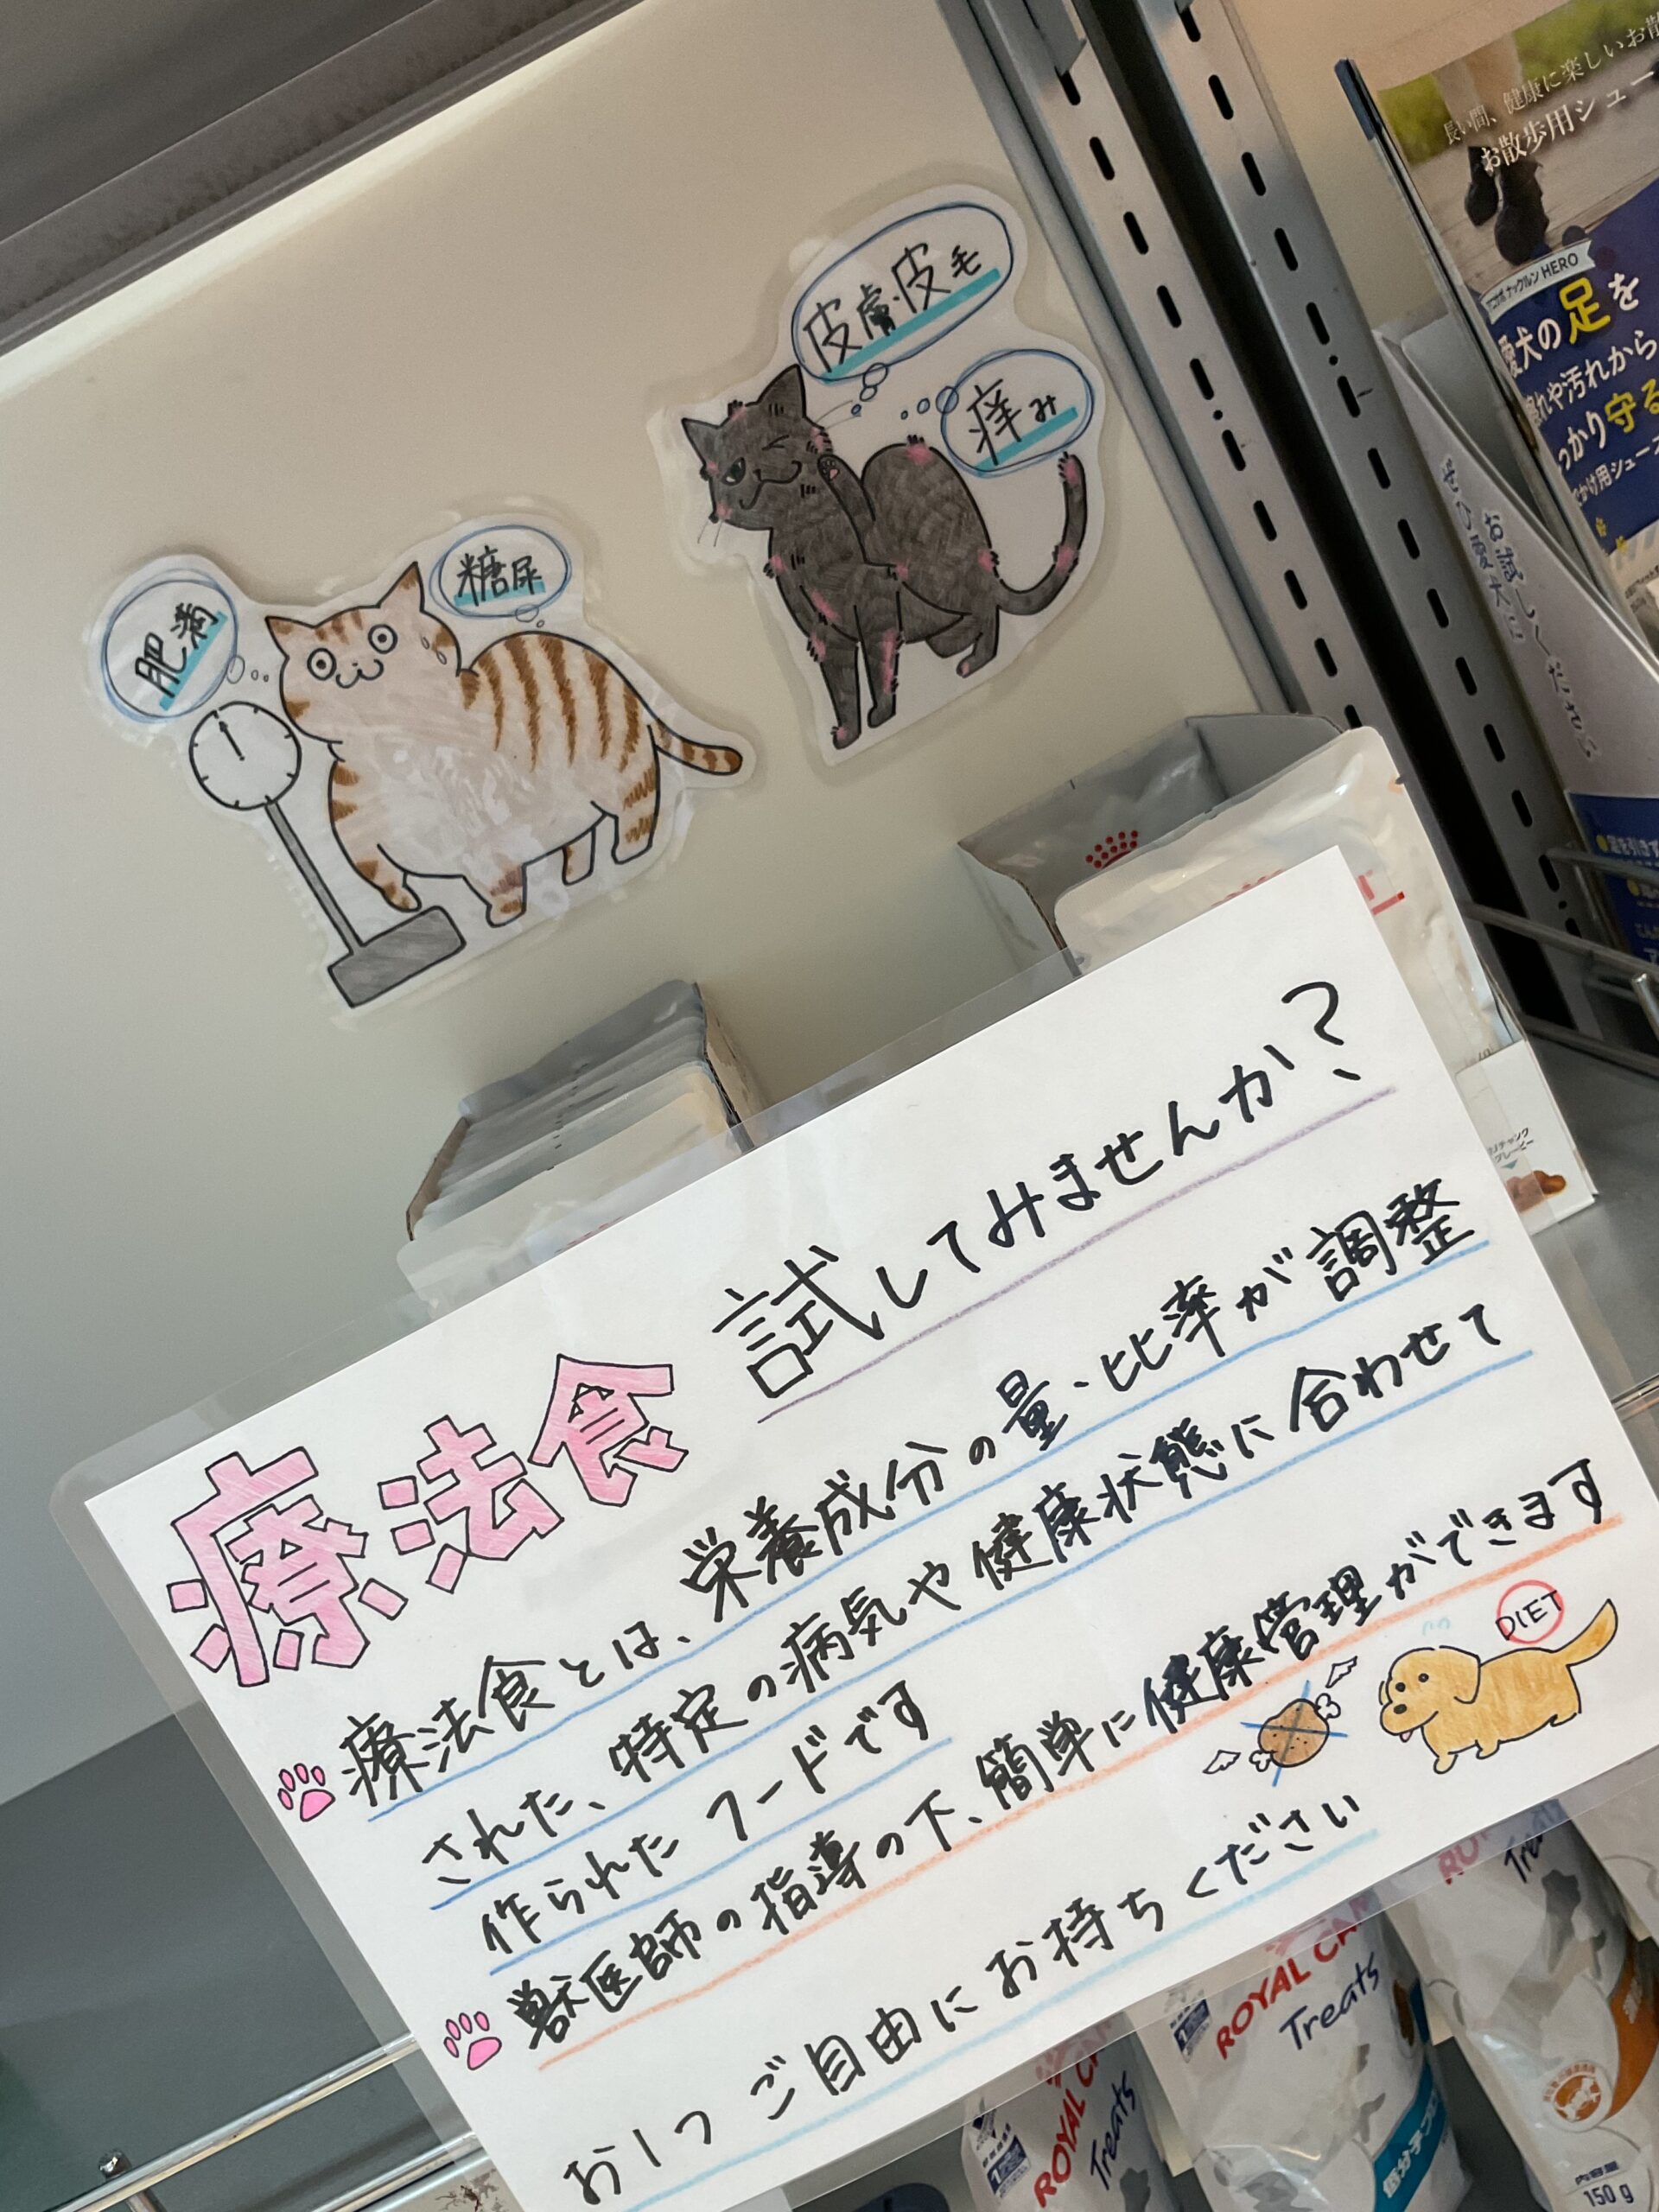 長い間、健康に楽しいお散
お散歩用シュー
ナックルン HERO
愛犬の足を
汚れから
っかり守る
お試しください
皮膚・皮毛
痒み
糖尿
肥満
療法食 試してみませんか?
療法食とは、栄養成分の量、比率が調整
された、特定の病気や健康状態に合わせて
作られたフードです
獣医師の指導の下、簡単に健康管理ができます
DIET
お1つ ご自由にお持ちください
ROYAL CAN
Treats
ROYAL CAN
Treats
低分子プ
内容量
150g